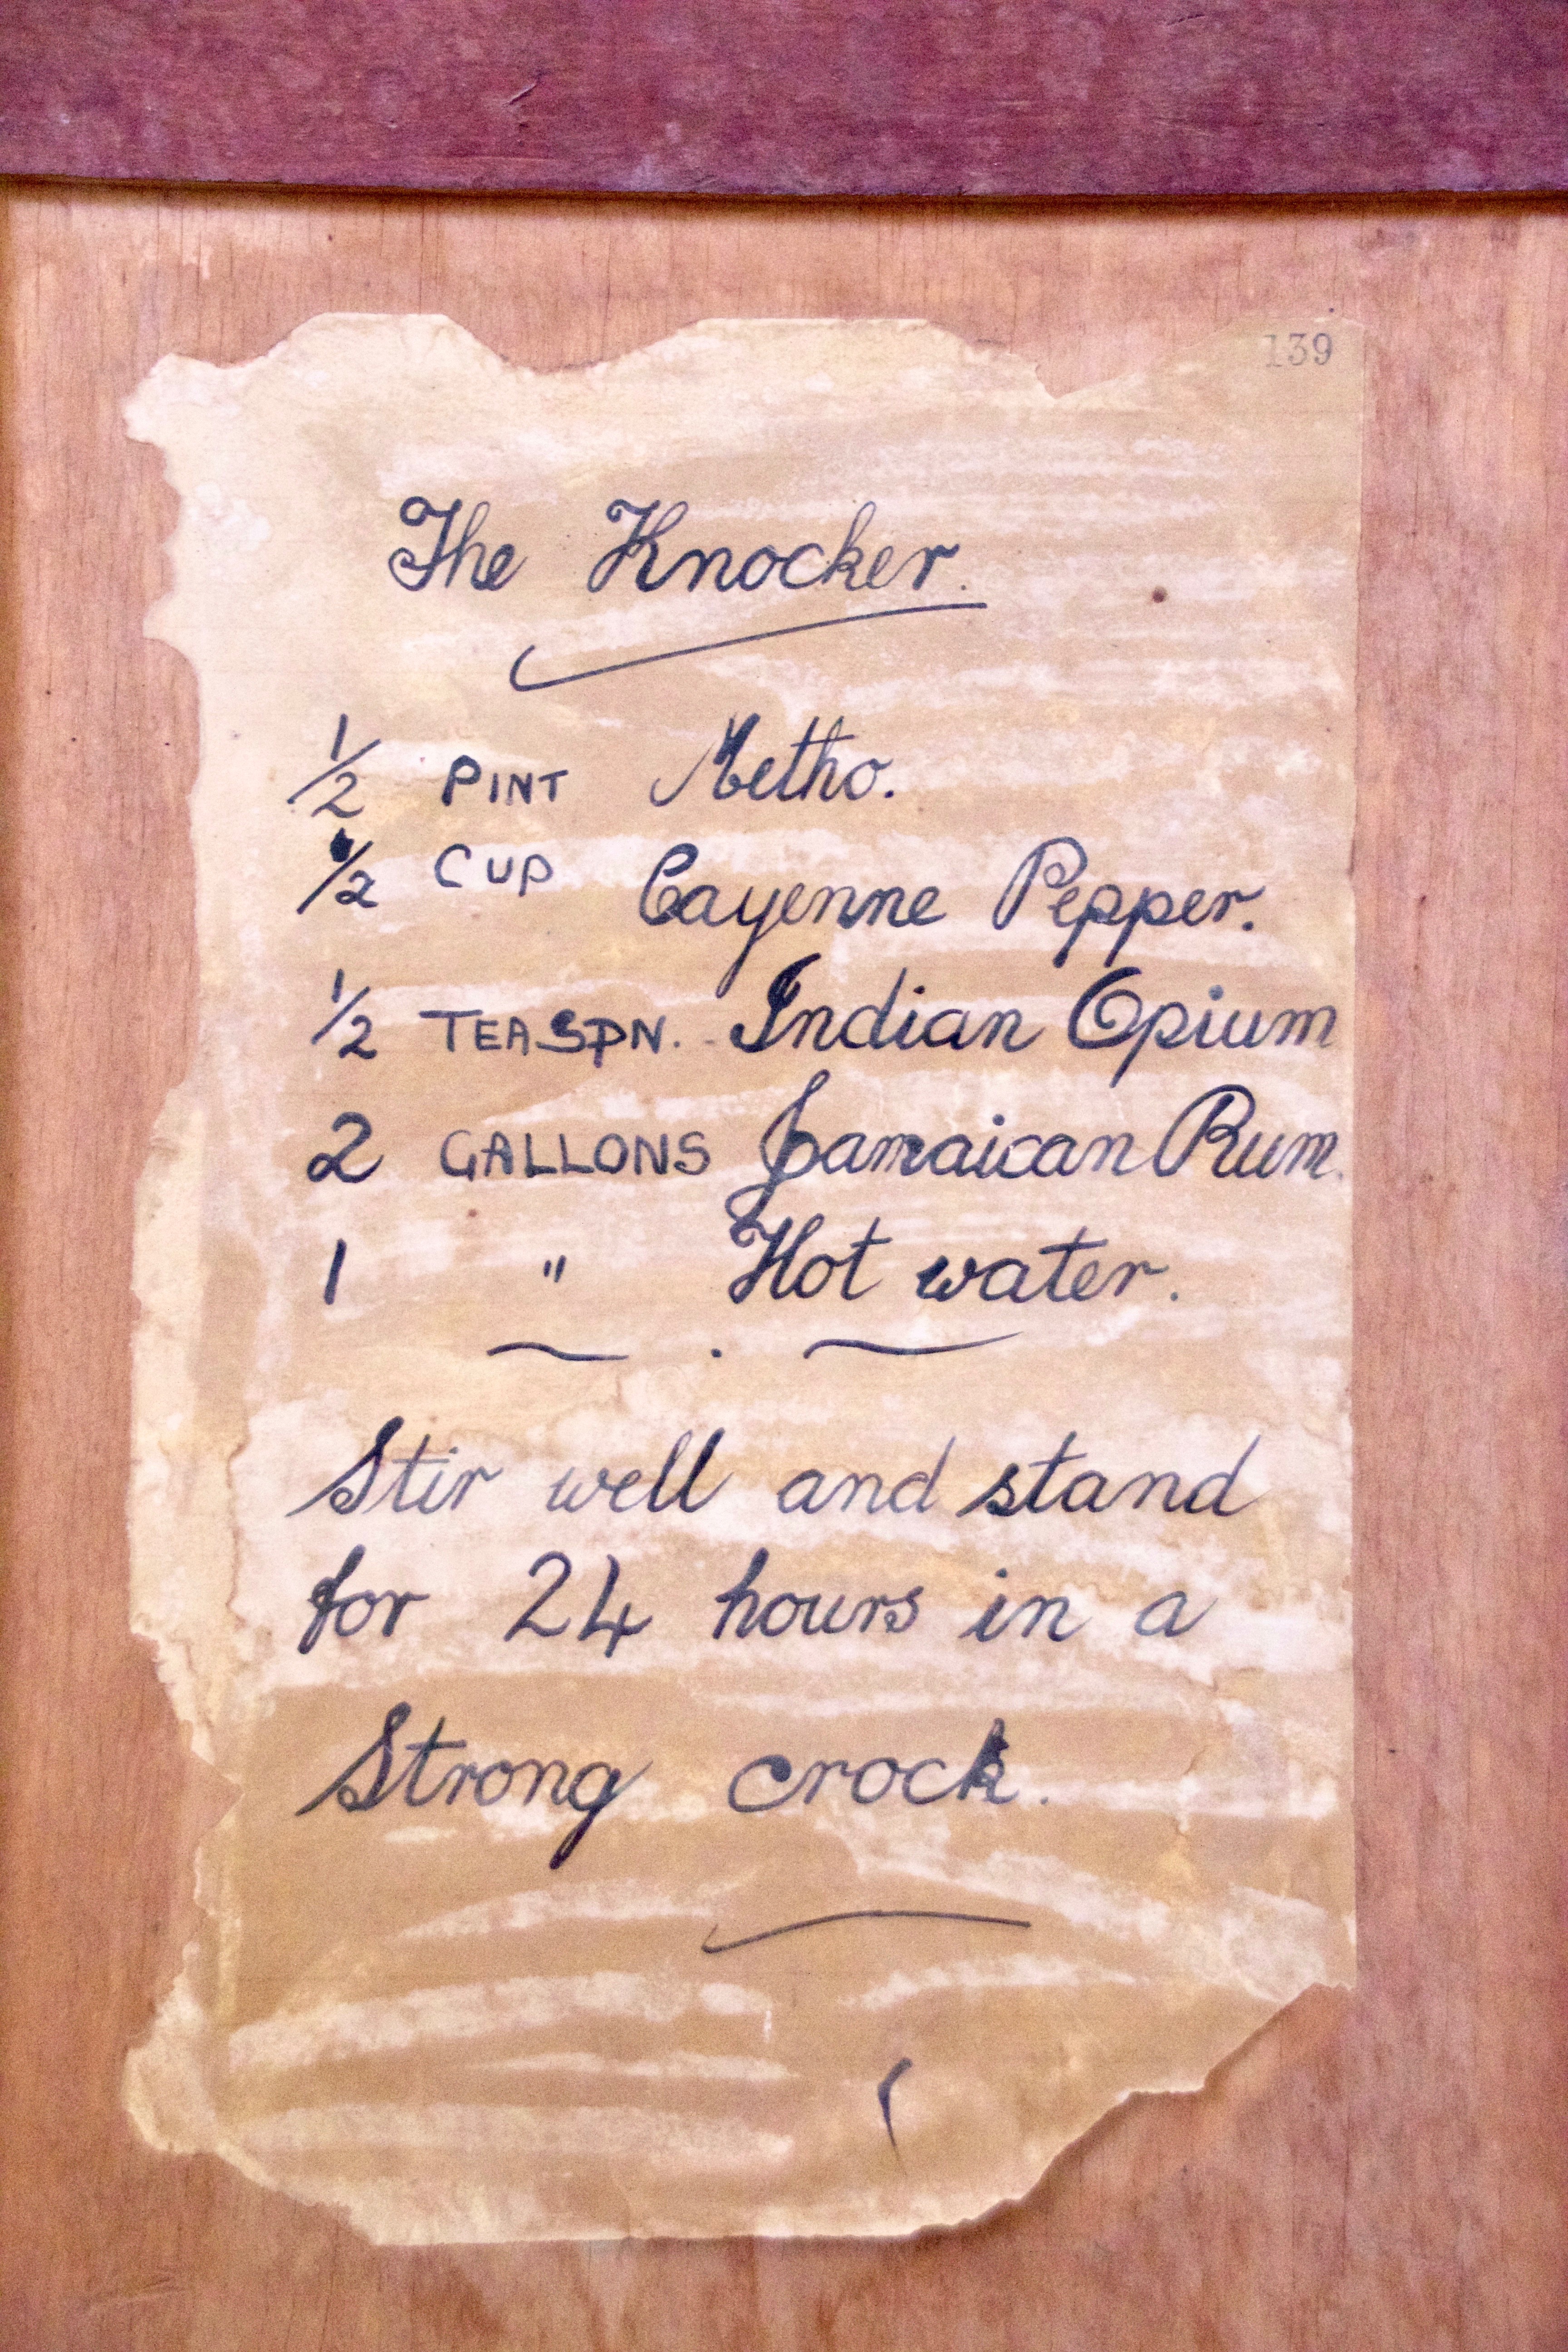 139
The Knocker.
1/2 PINT Metho.
1/2 CUP Cayenne Pepper.
1/2 TEASPN. Indian Opium
2 GALLONS Jamaican Rum.
1 " Hot water.
Stir well and stand
for 24 hours in a
Strong crock.